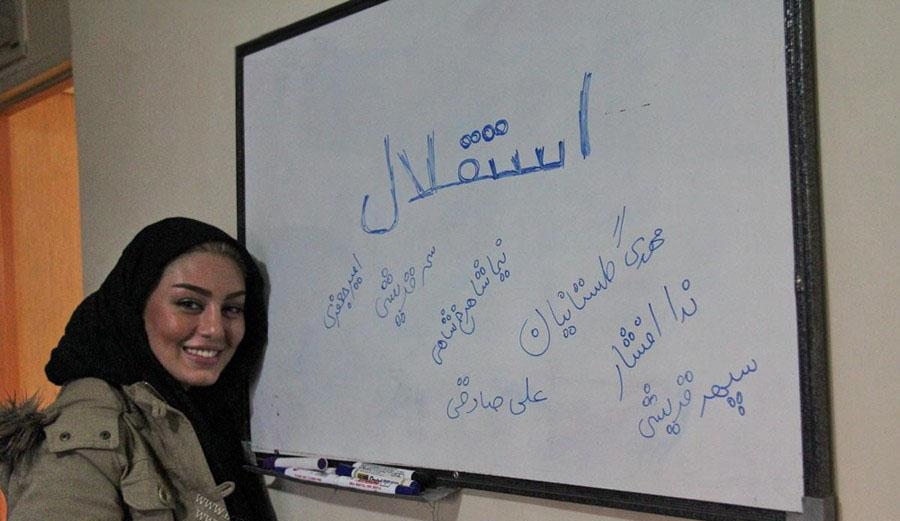 استقلال
مهدی گلستانیان
نیما شاهرخ شاهی
سحر قریشی
امیر جعفری
ندا افشار
علی صادقی
سپهر قریشی
www.